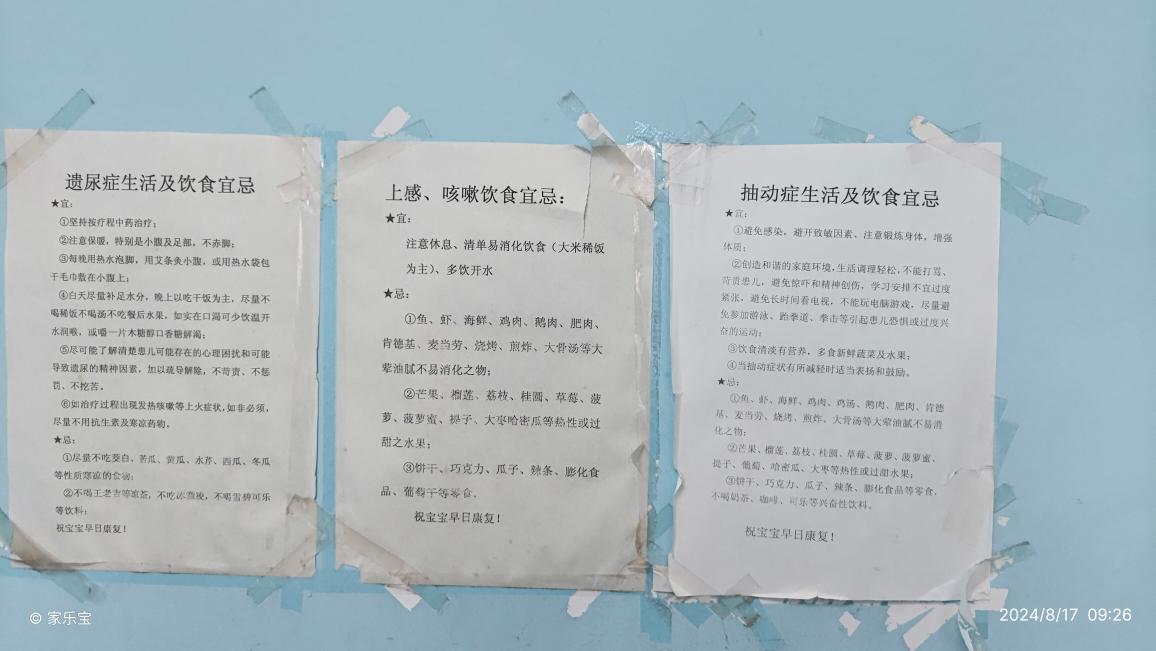 遗尿症生活及饮食宜忌
★宜：
①坚持按疗程中药治疗；
②注意保暖，特别是小腹及足部，不赤脚；
③每晚用热水泡脚，用艾条灸小腹，或用热水袋包
干毛巾敷在小腹上；
④白天尽量补足水分，晚上以吃干饭为主，尽量不
喝稀饭不喝汤不吃餐后水果，如实在口渴可少饮温开
水润喉，或嚼一片木糖醇口香糖解渴；
⑤尽可能了解清楚患儿可能存在的心理困扰和可能
导致遗尿的精神因素，加以疏导解除，不苛责、不惩
罚、不挖苦。
⑥如治疗过程出现发热咳嗽等上火症状，如非必须，
尽量不用抗生素及寒凉药物。
★忌：
①尽量不吃茭白、苦瓜、黄瓜、水芹、西瓜、冬瓜
等性质寒凉的食物；
②不喝王老吉等凉茶，不吃冰激凌，不喝雪碧可乐
等饮料；
祝宝宝早日康复！
上感、咳嗽饮食宜忌：
★宜：
注意休息、清单易消化饮食（大米稀饭
为主）、多饮开水
★忌：
①鱼、虾、海鲜、鸡肉、鹅肉、肥肉、
肯德基、麦当劳、烧烤、煎炸、大骨汤等大
荤油腻不易消化之物；
②芒果、榴莲、荔枝、桂圆、草莓、菠
萝、菠萝蜜、提子、大枣哈密瓜等热性或过
甜之水果；
③饼干、巧克力、瓜子、辣条、膨化食
品、葡萄干等零食。
祝宝宝早日康复！
抽动症生活及饮食宜忌
★宜：
①避免感染，避开致敏因素、注意锻炼身体，增强
体质；
②创造和谐的家庭环境，生活调理轻松，不能打骂、
苛责患儿，避免惊吓和精神创伤，学习安排不宜过度
紧张，避免长时间看电视，不能玩电脑游戏，尽量避
免参加游泳、跆拳道、拳击等引起患儿恐惧或过度兴
奋的运动；
③饮食清淡有营养，多食新鲜蔬菜及水果；
④当抽动症状有所减轻时适当表扬和鼓励。
★忌：
①鱼、虾、海鲜、鸡肉、鸡汤、鹅肉、肥肉、肯德
基、麦当劳、烧烤、煎炸、大骨汤等大荤油腻不易消
化之物；
②芒果、榴莲、荔枝、桂圆、草莓、菠萝、菠萝蜜、
提子、葡萄、哈密瓜、大枣等热性或过甜水果；
③饼干、巧克力、瓜子、辣条、膨化食品等零食，
不喝奶茶、咖啡、可乐等兴奋性饮料。
祝宝宝早日康复！
© 家乐宝
2024/8/17 09:26